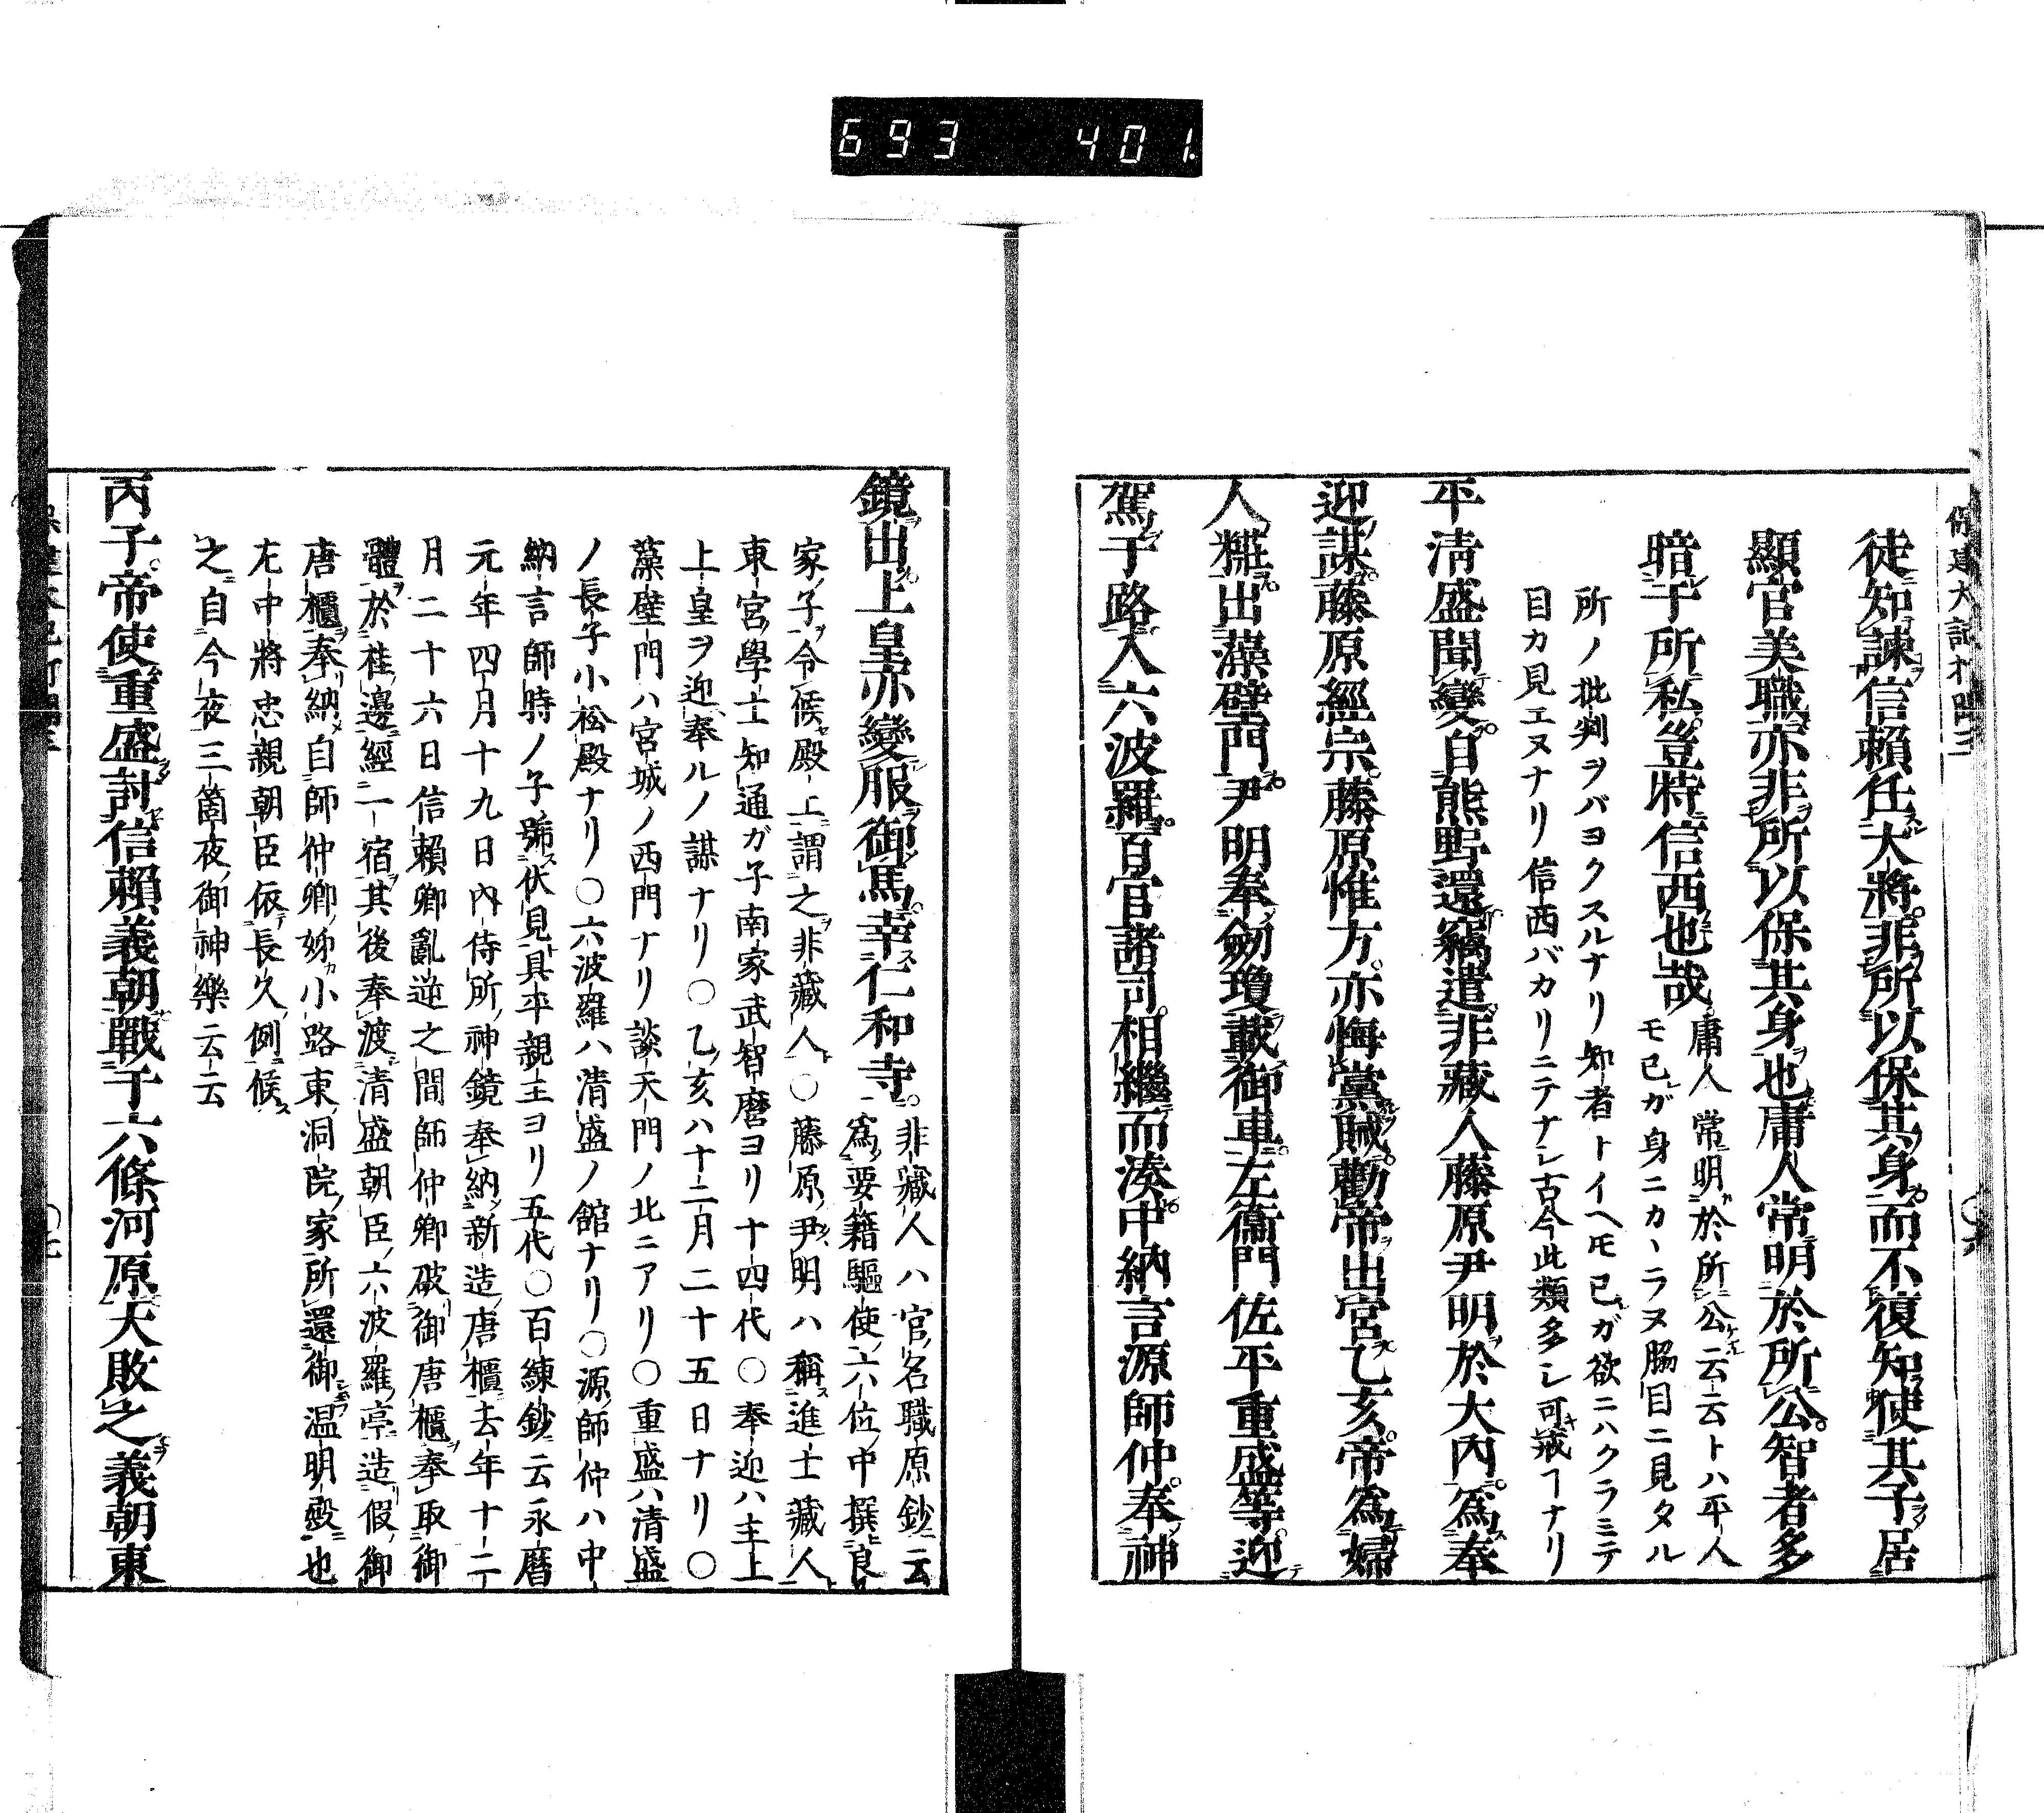 693 401
保建大記打聞三
徒知諫信賴任大將。非所以保其身。而不復知使其子居
顯官美職亦非所以保其身也庸人常明於所公。智者多
暗于所私。豈特信西也哉 庸人常明於所公云云トハ平人
モ已ガ身ニカヽラヌ脇目ニ見タル
所ノ批判ヲバヨクスルナリ知者トイヘ𪜈已ガ欲ニハクラミテ
目カ見エヌナリ信西バカリニテナシ古今此類多シ可戒ヿナリ
平淸盛聞變。自熊野還竊遣非藏人藤原尹明於大內。爲奉
迎謀。藤原經宗。藤原惟方。亦悔黨賊。勸帝出宮乙亥。帝爲婦
人糚出藻壁門。尹明奉劒瓊載御車。左衞門佐平重盛等。迎
駕于路。入六波羅。百官諸司。相繼而湊中納言源師仲。奉神
鏡出上皇亦變服御馬。幸仁和寺。 非藏人ハ官名職原鈔云
爲要籍驅使六位中撰良
家子令候殿上謂之非藏人○藤原尹明ハ稱進士藏人
東宮學士知通ガ子南家武智麿ヨリ十四代○奉迎ハ主上
上皇ヲ迎奉ルノ謀ナリ○乙亥ハ十二月二十五日ナリ○
藻壁門ハ宮城ノ西門ナリ談天門ノ北ニアリ○重盛ハ清盛
ノ長子小松殿ナリ○六波羅ハ清盛ノ館ナリ○源師仲ハ中
納言師時ノ子號伏見具平親王ヨリ五代○百練鈔云永曆
元年四月十九日內侍所神鏡奉納新造唐櫃去年十二
月二十六日信賴卿亂逆之間師仲卿破御唐櫃奉取御
體於桂邊經一宿其後奉渡清盛朝臣六波羅亭造假御
唐櫃奉納自師仲卿姊小路東洞院家所還御溫明殿也
左中將忠親朝臣依長久例候
之自今夜三箇夜御神樂云云
丙子。帝使重盛討信賴義朝戰于六條河原大敗之義朝東